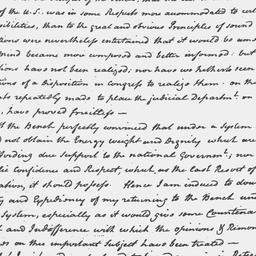 of the U.S. was in some Respects more accommodated to cert
sibilities, than to the great and obvious Principles of sound
tions were nevertheless entertained that it would be ame
mind became more composed and better informed: but
tions have not been realized; nor have we hitherto seen
ions of a Disposition in congress to realize them. on the
nts repeatedly made to place the judicial Departmt. on
, have proved fruitless—
ft the Bench perfectly convinced that under a System
d not obtain the Energy weight and Dignity which are
ffording due support to the national Governmt.; nor
lic confidence and Respect, which, as the last Resort of
ation, it should possess. Hence I am induced to dou
y and Expediency of my returning to the Bench und
System, especially as it would give some Countenan
t and Indifference with which the opinions & Remon
es on this important Subject have been treated—